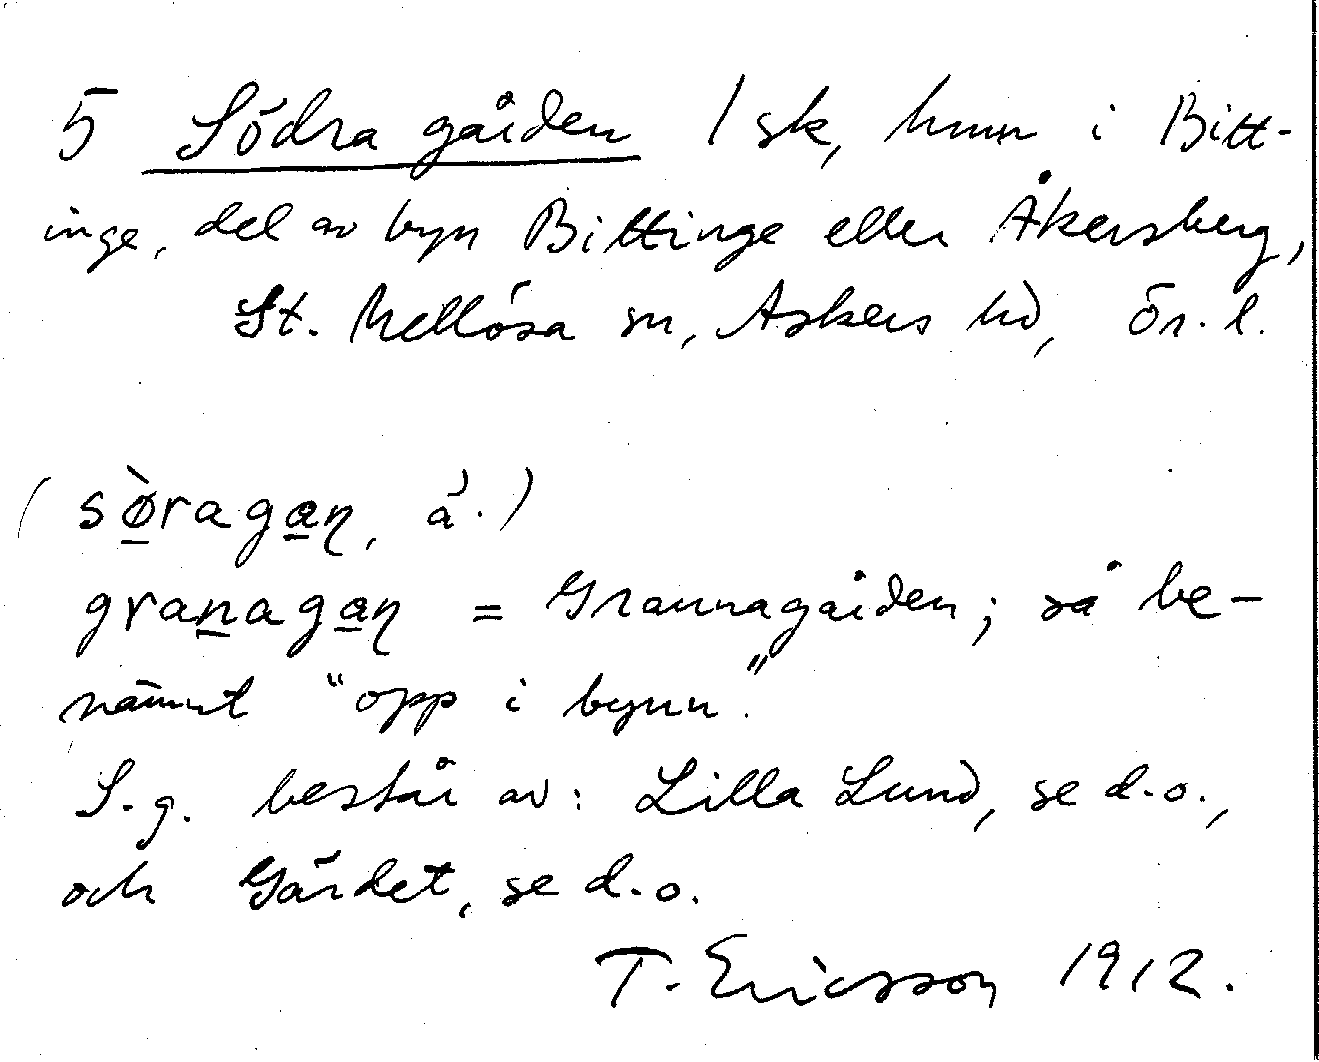 5 Södra gården 1 sk, hmn i Bitt-
inge, del av byn Bittinge eller Åkersberg,
St. Mellösa sn, Askers hd, Ör. l.
(sø̀ragaɳ, á.)
granagaɳ = Grannagården; så be-
nämnt "opp i bynn".
S.g. består av: Lilla Lund, se d.o.,
och Gärdet, se d.o.
T. Ericsson 1912.